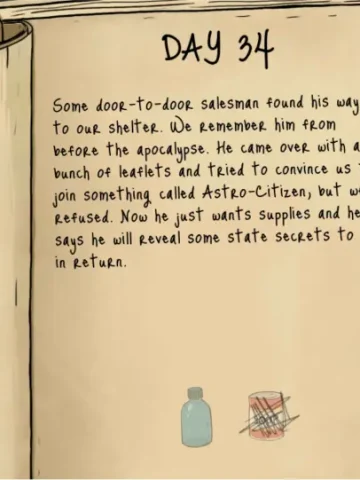 DAY 34
Some door-to-door salesman found his way
to our shelter. We remember him from
before the apocalypse. He came over with a
bunch of leaflets and tried to convince us
join something called Astro-Citizen, but
refused. Now he just wants supplies and he
says he will reveal some state secrets to
in return.